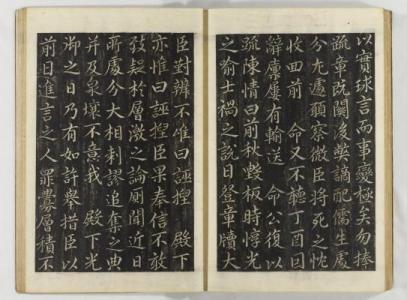 以實球言而事變極矣勿捧
疏章旣關後弊謫配儒生處
分尤遽願察微臣將死之忱
收回前 命又不聽丁酉因
辭廩屢有輸送 命公復以
疏陳情曰前秋數板時惇光
之喻士禍之說日登章牘大
臣對辨不惟曰誣揑 殿下
亦惟曰誣揑臣果奉信不敢
致疑於層激之論而聞近日
所處分大相剌謬追奪之典
并及泉壤不意我 殿下光
御之日乃有如許擧措臣以
前日進言之人罪釁層積不